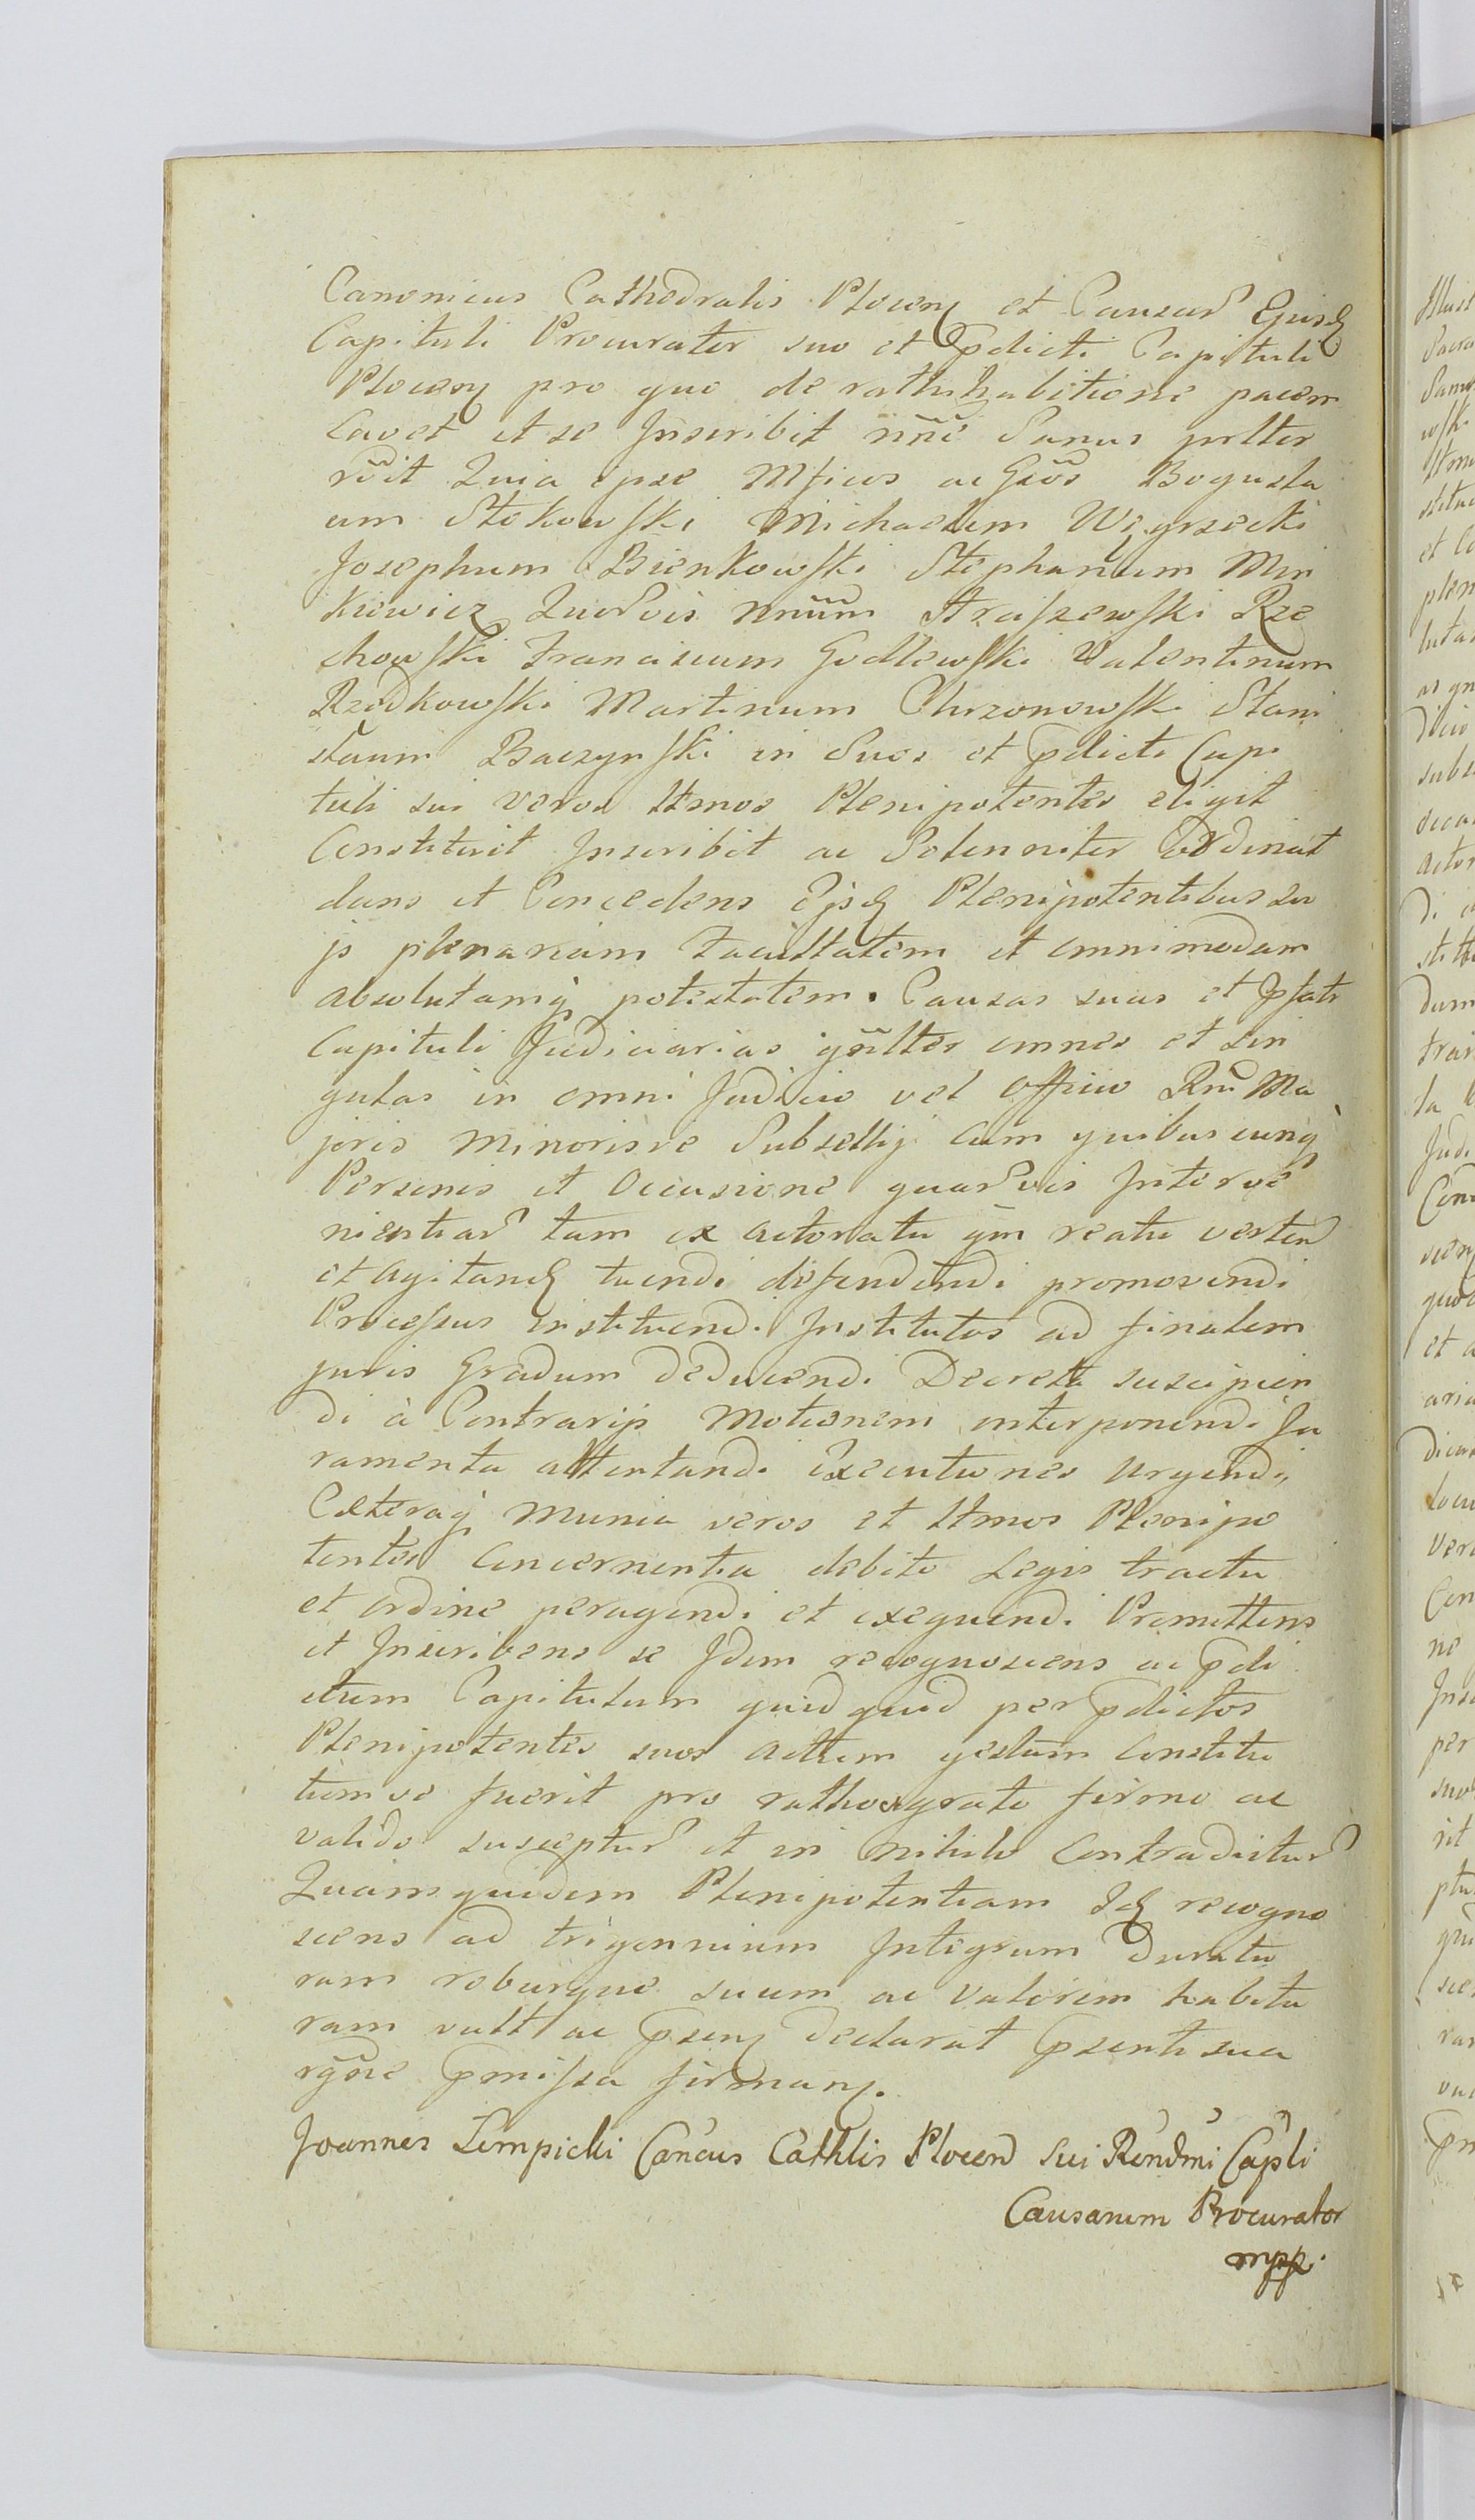 Canonicus Cathedralis Plocen et Causar Ejusd
Capituli Procurator suo et pdicti Capituli
Plocen pro quo de rathihabitione pacem
Cavet et se Inscribit nne Sanus prltter
rdit Quia ipse Mficos ac Gsos Bogusla
um Stokowski Michaelem Węgrzecki
Josephum Bienkowski Stephanum Min
kiewicz Quorvis nnum Straszewski Rze
chowski Franciscum Godlewski Valentinum
Rzodkowski Martinum Chrzonowski Stani
slaum Baczynski in Suos et pdicti Capi
tuli sui veros lttmos Plenipotentes eligit
Constituit Inscribit ac Solenniter Ordinat
dans et Concedens Ejsd Plenipotentibus su
js plenariam Facultatem et omnimodam
absolutamq potestatem. Causas suas et pfati
Capituli Judiciarias gnltter omnes et sin
gulas in omni Judicio vel Officio Rni Ma
joris Minorisve Subsellij Cum quibuscunq
Personis et Occasione quarvis Interve
nientiar tam ex actoratu qm reatu verten
et agitand tuendi defendendi promovendi
Processus instituendi Institutos ad finalem
juris Gradum deducendi Decreta suscipien
di à Contrarijs Motionem interponendi Ju
ramenta attentandi Executiones urgendi,
Cæteraq Munia veros et lttmos Plenipo
tentes Concernentia debito Legis tractu
et ordine peragendi et exequendi Promittens
et Inscribens se Idem recognoscens ac pdi
ctum Capitulum quidquid per pdictos
Plenipotentes suos actum gestum Constitu
tumve fuerit pro ratho grato firmo ac
valido susceptur et in nihilo Contradictur
Quam quidem Plenipotentiam Id recogno
scens ad trigennium Integrum duratu
ram roburque suum ac valorem habitu
ram vult ac psen declarat psenti sua
rgne pmissa firman.
Joannes Lempicki Cancus Cathlis Plocen Sui Rendmi Capli
Causarum Procurator
mpp.